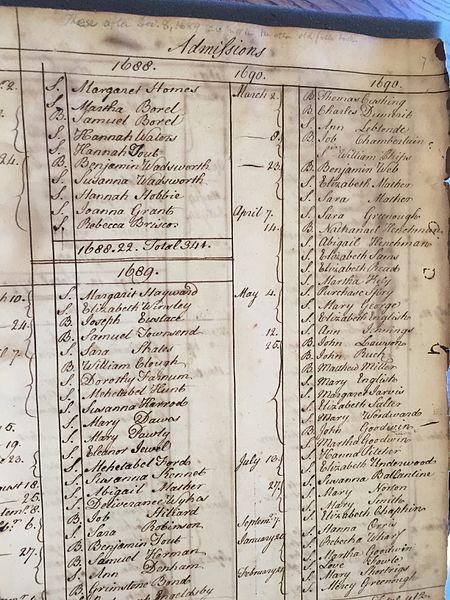 These after Dec. 8, 1689 are in the other old folio book
Admissions
7
1688.
S. Margaret Homes
S. Martha Barel
B. Samuel Borel
S. Hannah Waters
S. Hannah Tout
B. Benjamin Wadsworth
S. Susanna Wadsworth
S. Hannah Hobbie
S. Joanna Grant
S. Rebecca Brisco.
1688. 22. Total 341
1689.
S. Margarit Hayward
S. Elizabeth Winsley
B. Joseph Eustace
B. Samuel Townsend
S. Sara Skates
B. William Clough
S. Dorothy Farnum
S. Mehetabel Hunt
S. Susanna Harrod
S. Mary Dawes
S. Mary Pawly
S. Eleanor Jewel
S. Mehetabel Ford
S. Susanna Kennet
S. Abigail Mather
S. Deliverance
B. Job Hilliard
S. Sara Robinson
B. Benjamin Tout
B. Samuel Horman
S. Ann Denham
B. Grimstone Bond
Engoldsby
2.
24.
10.
24.
7.
5.
19.
23.
18.
25.
8.
6.
27.
1690.
March 2.
8.
23.
April 7.
14.
May 4.
12.
25.
July 13.
27.
Septem. 7.
January
February
1690.
B. Thomas Cushing
B. Charles Demerit
S. Ann Leblonde
B. Job Chamberlain
William Phips
B. Benjamin Web
S. Elizabeth Mather
S. Sara Mather
S. Sara Greenough
B. Nathanael Henchman
S. Abigail Henchman
S. Elizabeth Sams
S. Elizabeth Read
S. Martha Hey
S. Mary George
S. Elizabeth English
S. Ann Jennings
B. John Lawson
B. John Ruck
B. Matthew Miller
S. Mary English
S. Margaret Jarvis
S. Elizabeth
S. Mary Woodward
B. John Goodwin
S. Martha Goodwin
S. Hanna Pitcher
S. Elizabeth Underwood
S. Susanna Ballantine
S. Mary Norton
S. Mary Smith
S. Elizabeth Chaphin
S. Hanna Orris
S. Rebecka Wharf
S. Martha Goodwin
S. Love
S. Mary
S. Mercy Greenough